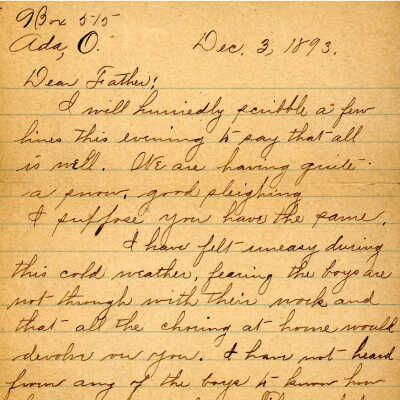 Box 575
Ada, O.
Dec. 3, 1893.
Dear Father;
I will hurriedly scribble a few
lines this evening to say that all
is well. We are having quite
a snow, good sleighing
I suppose you have the same.
I have felt uneasy during
this cold weather, fearing the boys are
not through with their work and
that all the choring at home would
devolve on you. I have not heard
from any of the boys to know how